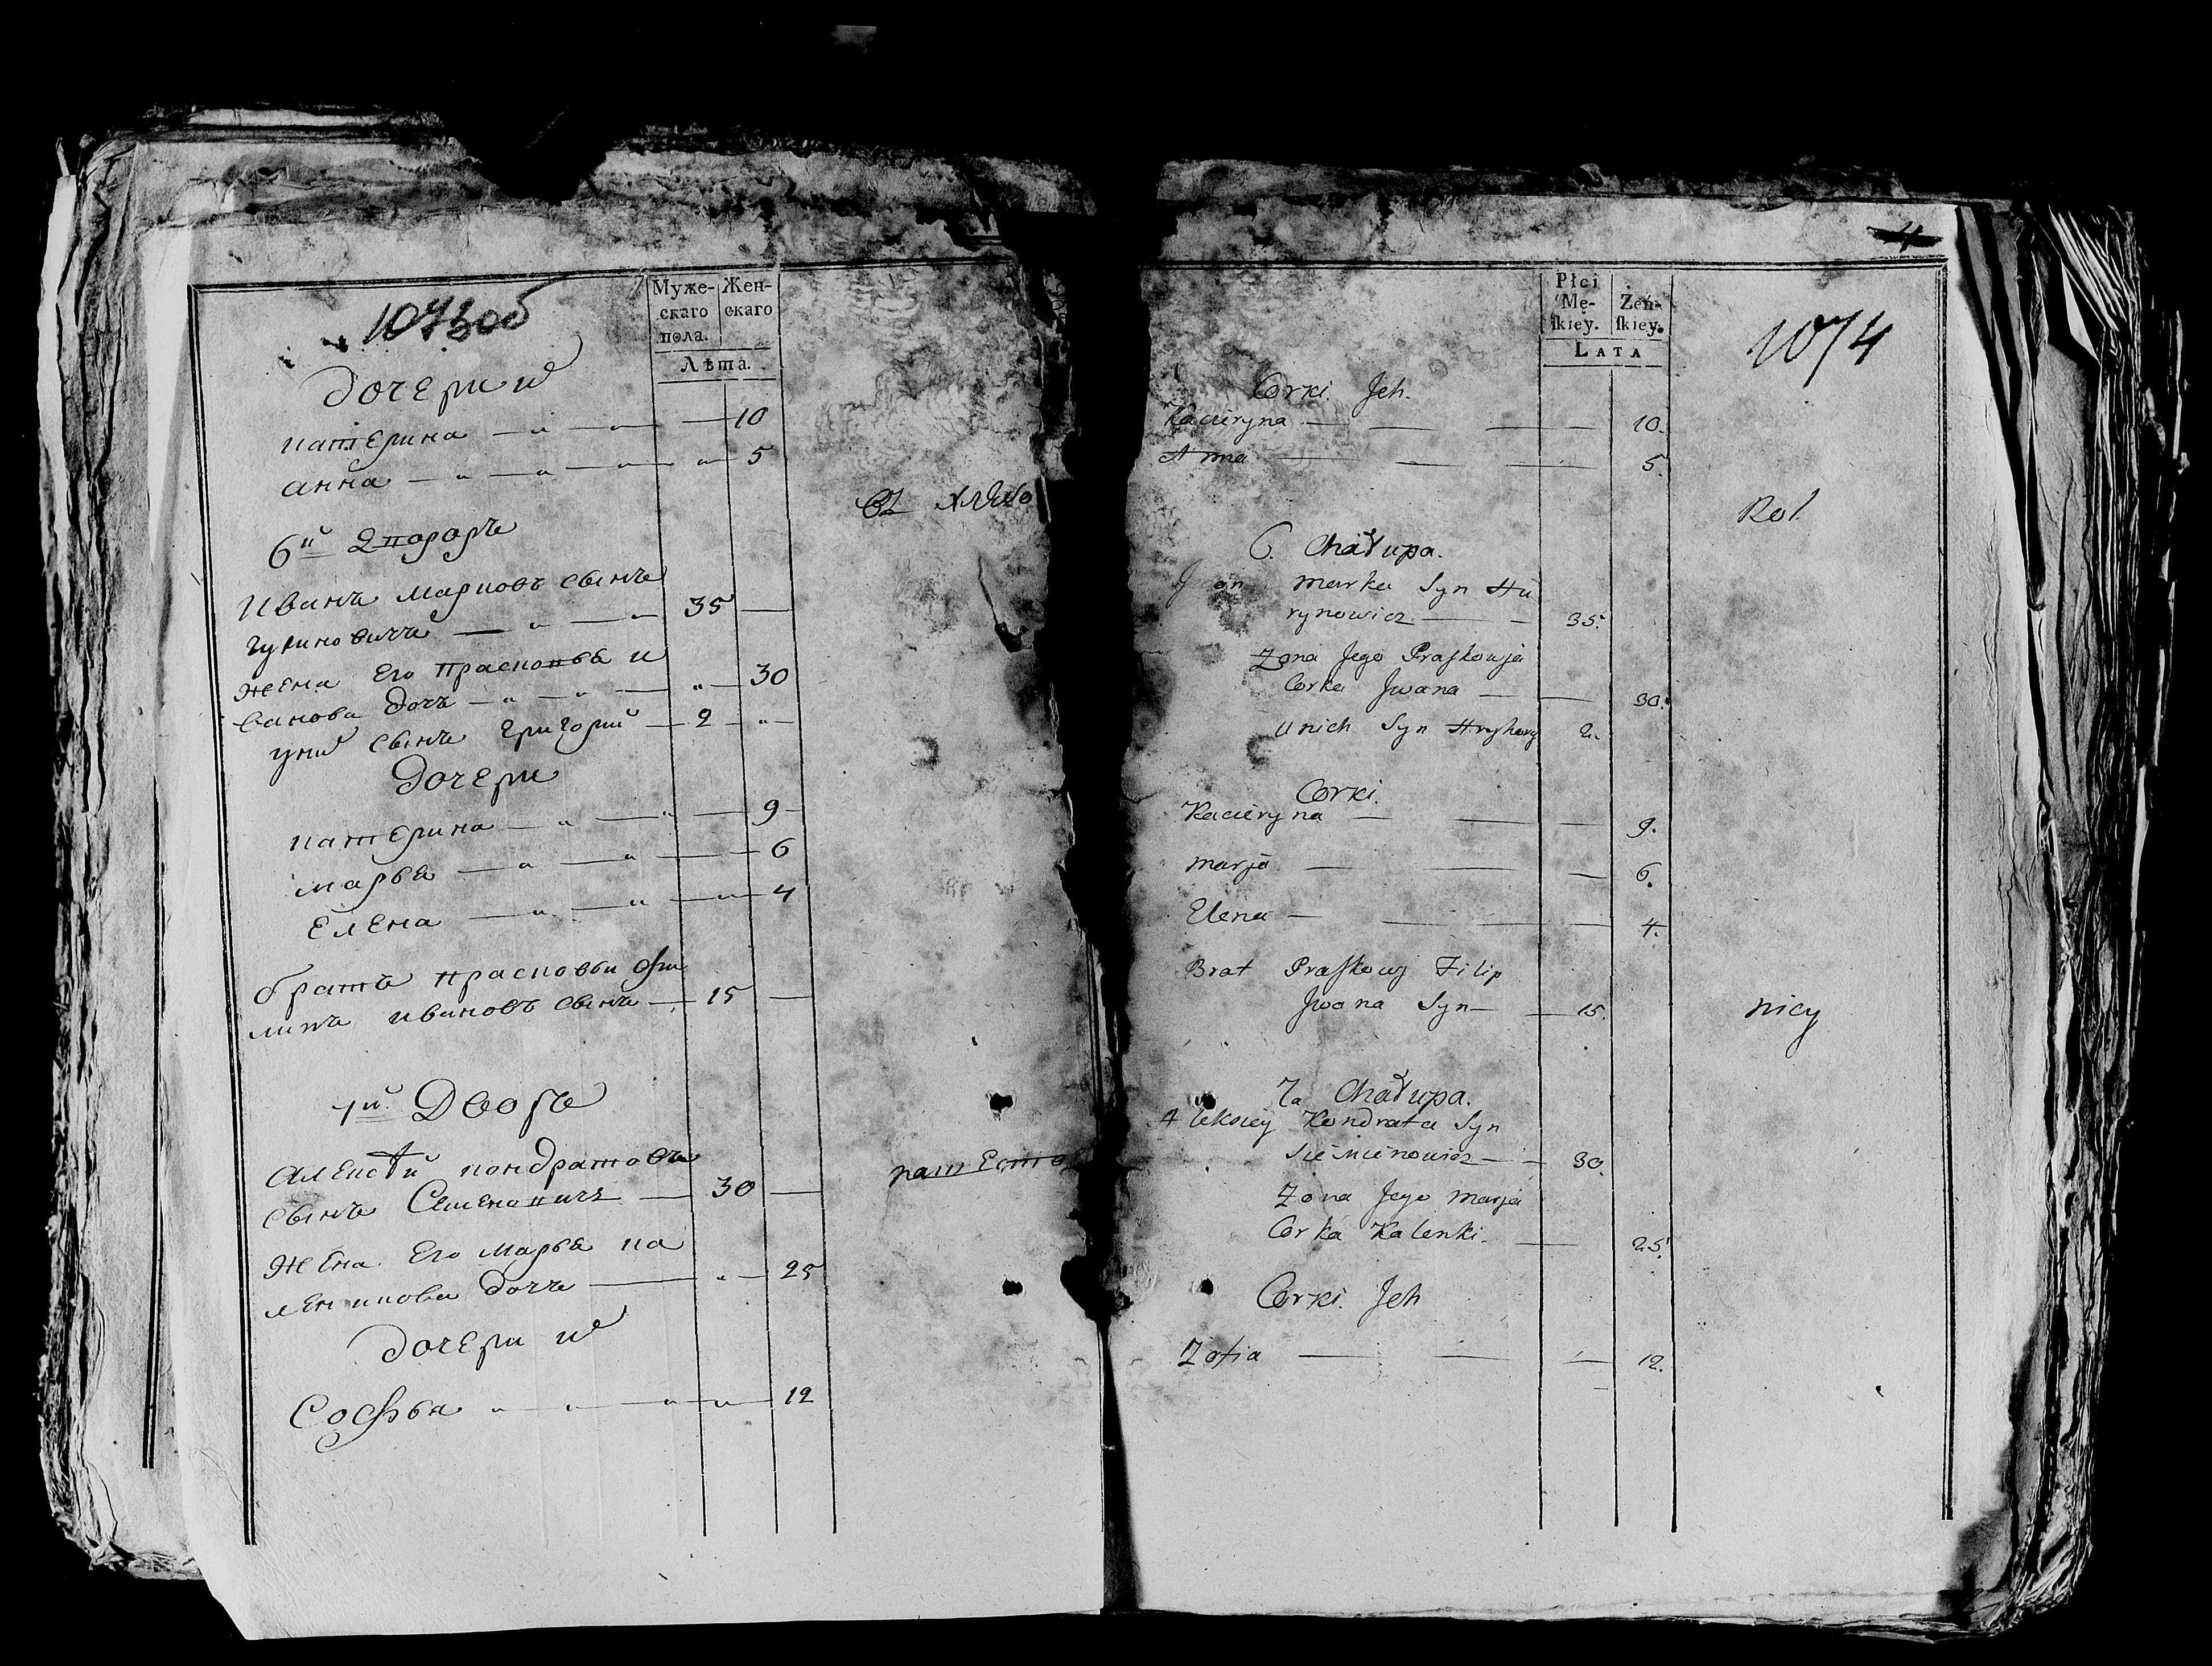 1073об
Муже-
скаго
пола.
Жен-
скаго
Лѣта.
дочери их
катерина 10
анна 5
6й Двор
изъ хлѣбо
Иванъ марковъ сынъ
гуриновичъ 35
жена Его прасковья и
ванова дочь 30
у них сынъ григорий 2
дочери
катерина 9
марья 6
Елена 4
братъ прасковьи фи
липъ ивановъ сынъ 15
7й Дворъ
Алексѣй кондратовъ
сынъ Семеновичъ 30
жена Его марья ка
леникова дочь 25
дочери их
Софья 12
4
Płci
Mę-
ſkiey.
Żeń-
ſkiey.
LATA
1074
Corki Jch.
Kacieryna 10.
Anna 5.
Rol
6. Chałupa.
Jwan marka Syn Hu
rynowicz 35.
Zona Jego Praſkowja
Corka Jwana 30.
U nich Syn Hryhory 2.
Corki.
Kacieryna 9.
marja 6.
Elena 4.
Brat Praſkowj Filip
Jwana Syn 15.
nicy
7a Chałupa.
Alekſiey Kondrata Syn
Siemienowicz 30.
Zona Jego marja
Corka Kalenki. 25.
Corki. Jch
Zofia 12.